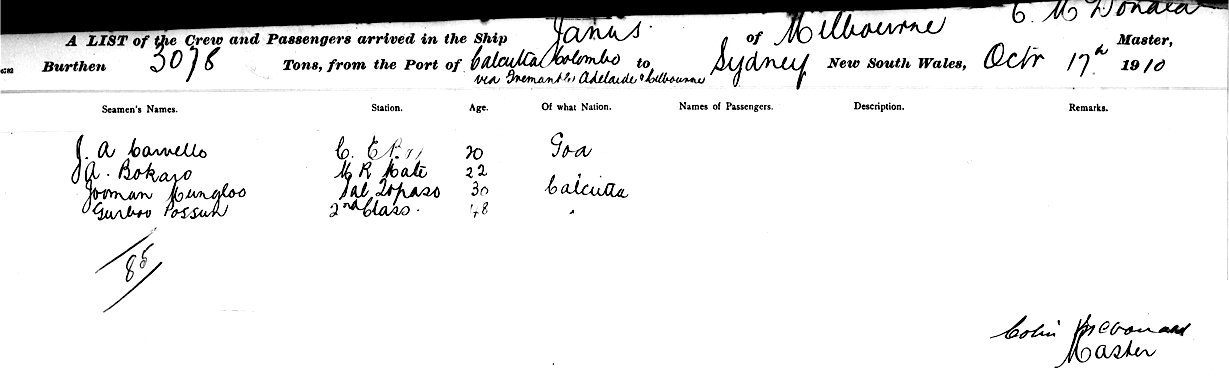 C. McDonald
A LIST of the Crew and Passengers arrived in the Ship Janus of Melbourne Master,
Burthen 3078 Tons, from the Port of Calcutta Colombo to Sydney New South Wales, Octr 17th 1910
via Fremantle Adelaide & Melbourne
Seamen's Names. Station. Age. Of what Nation. Names of Passengers. Description. Remarks.
J. A Carvello C. 20 Goa
A. Bokaro M R Mate 22
Jooman Mungloo Topaso 30 Calcutta
Gurboo Possun 2nd Class. 48 "
85
Colin McDonald
Master